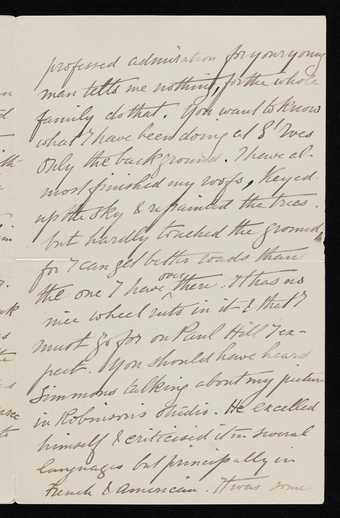 professed admiration for your young
man tells me nothing, for the whole
family do that. You want to know
what I have been doing at St Ives
only the background. I have al-
most finished my roofs, Keyed
up the sky & repainted the trees.
but hardly touched the ground,
for I can get better roads than
the one I have over there. It has no
nice wheel ruts in it! that I
must go for on Paul Hill I ex-
pect. You should have heard
Simmons talking about my picture
in Robinsons studio. He excelled
himself & criticised it in several
languages but principally in
French & American. It was some